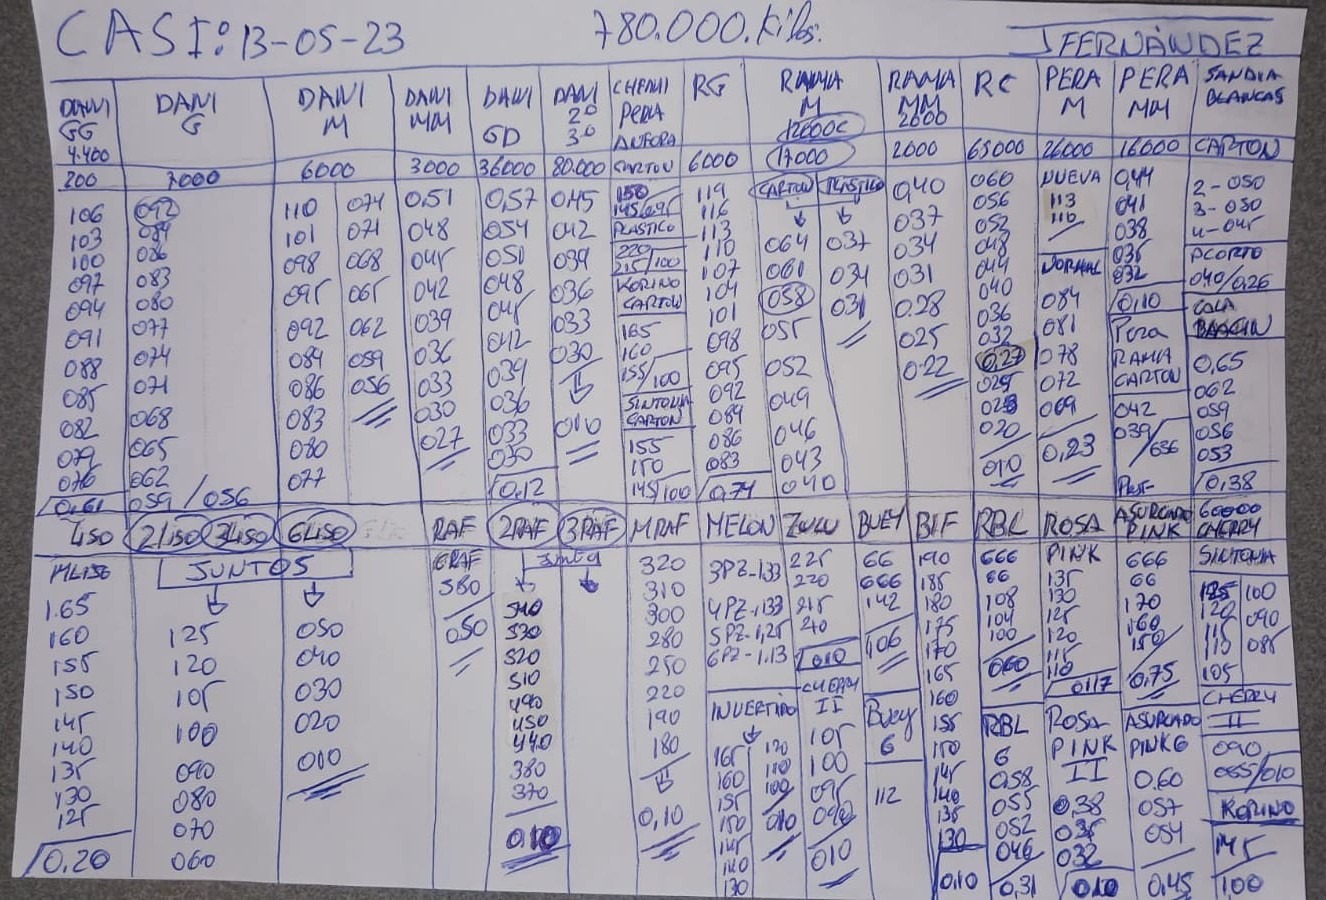 CASI: 13-05-23
780.000.Kilos.
J FERNÁNDEZ
DANI GG 4.400
200
106
103
100
097
094
091
088
085
082
079
076
0,61
DANI G
7000
092
089
086
083
080
077
074
071
068
065
062
059/056
DANI M
6000
110
101
098
095
092
089
086
083
080
077
074
071
068
065
062
059
056
DANI MM
3000
0,51
048
045
042
039
036
033
030
027
DANI GD
36000
0,57
054
051
048
045
042
039
036
033
030
0,12
DANI 2º 3º
80.000
0,45
042
039
036
033
030
010
CHERRI PERA ANFORA
CARTON
150
145/0,95
PLASTICO
220
215/100
KORINO CARTON
165
160
155/100
SINTONIA CARTON
155
150
145/100
RG
6000
119
116
113
110
107
104
101
098
095
092
089
086
083
0,74
RAMA M
12000C
17000
CARTON
064
061
058
055
052
049
046
043
040
PLASTICO
037
034
031
RAMA MM 2000
2000
0,40
037
034
031
0.28
025
0.22
RC
65000
060
056
052
048
044
040
036
032
0,27
025
023
020
010
PERA M
26000
NUEVA
113
110
NORMAL
084
081
078
072
069
0,23
PERA MM
16000
0,44
041
038
035
032
0,10
Pera
RAMA CARTON
042
039/036
SANDIA BLANCAS
CARTON
2-050
3-050
4-045
PCORTO
040/0,26
0,65
062
059
056
053
0,38
LISO
MLISO
1.65
160
155
150
145
140
135
130
125
0,20
2LISO 3LISO
JUNTOS
125
120
105
100
090
080
070
060
6LISO
050
040
030
020
010
RAF
GRAF
580
050
2RAF
3RAF
Junta
540
530
520
510
490
450
440
380
370
0.10
MRAF
320
310
300
280
250
220
190
180
0,10
MELON
3PZ-1,33
4PZ-1,33
5PZ-1,25
6PZ-1.13
INVERTIDO
165
160
155
150
145
140
130
120
110
100
010
ZULU
225
220
215
210
010
CHERRY II
105
100
095
090
010
BUEY
66
666
142
106
Buey 6
112
BIF
190
185
180
175
170
165
160
155
150
145
140
135
130
0,10
RBL
666
66
108
104
100
060
RBL 6
0,58
055
052
046
0,31
ROSA
PINK
135
130
125
120
115
110
0,117
ROSA PINK II
0,38
035
032
010
ASURCADO PINK
666
66
170
160
150
0,75
ASURCADO PINK 6
0,60
057
054
0,45
60000 CHERRY
SINTONIA
125
120
115
105
100
090
085
CHERRY II
090
085/010
KORINO
145
1,00